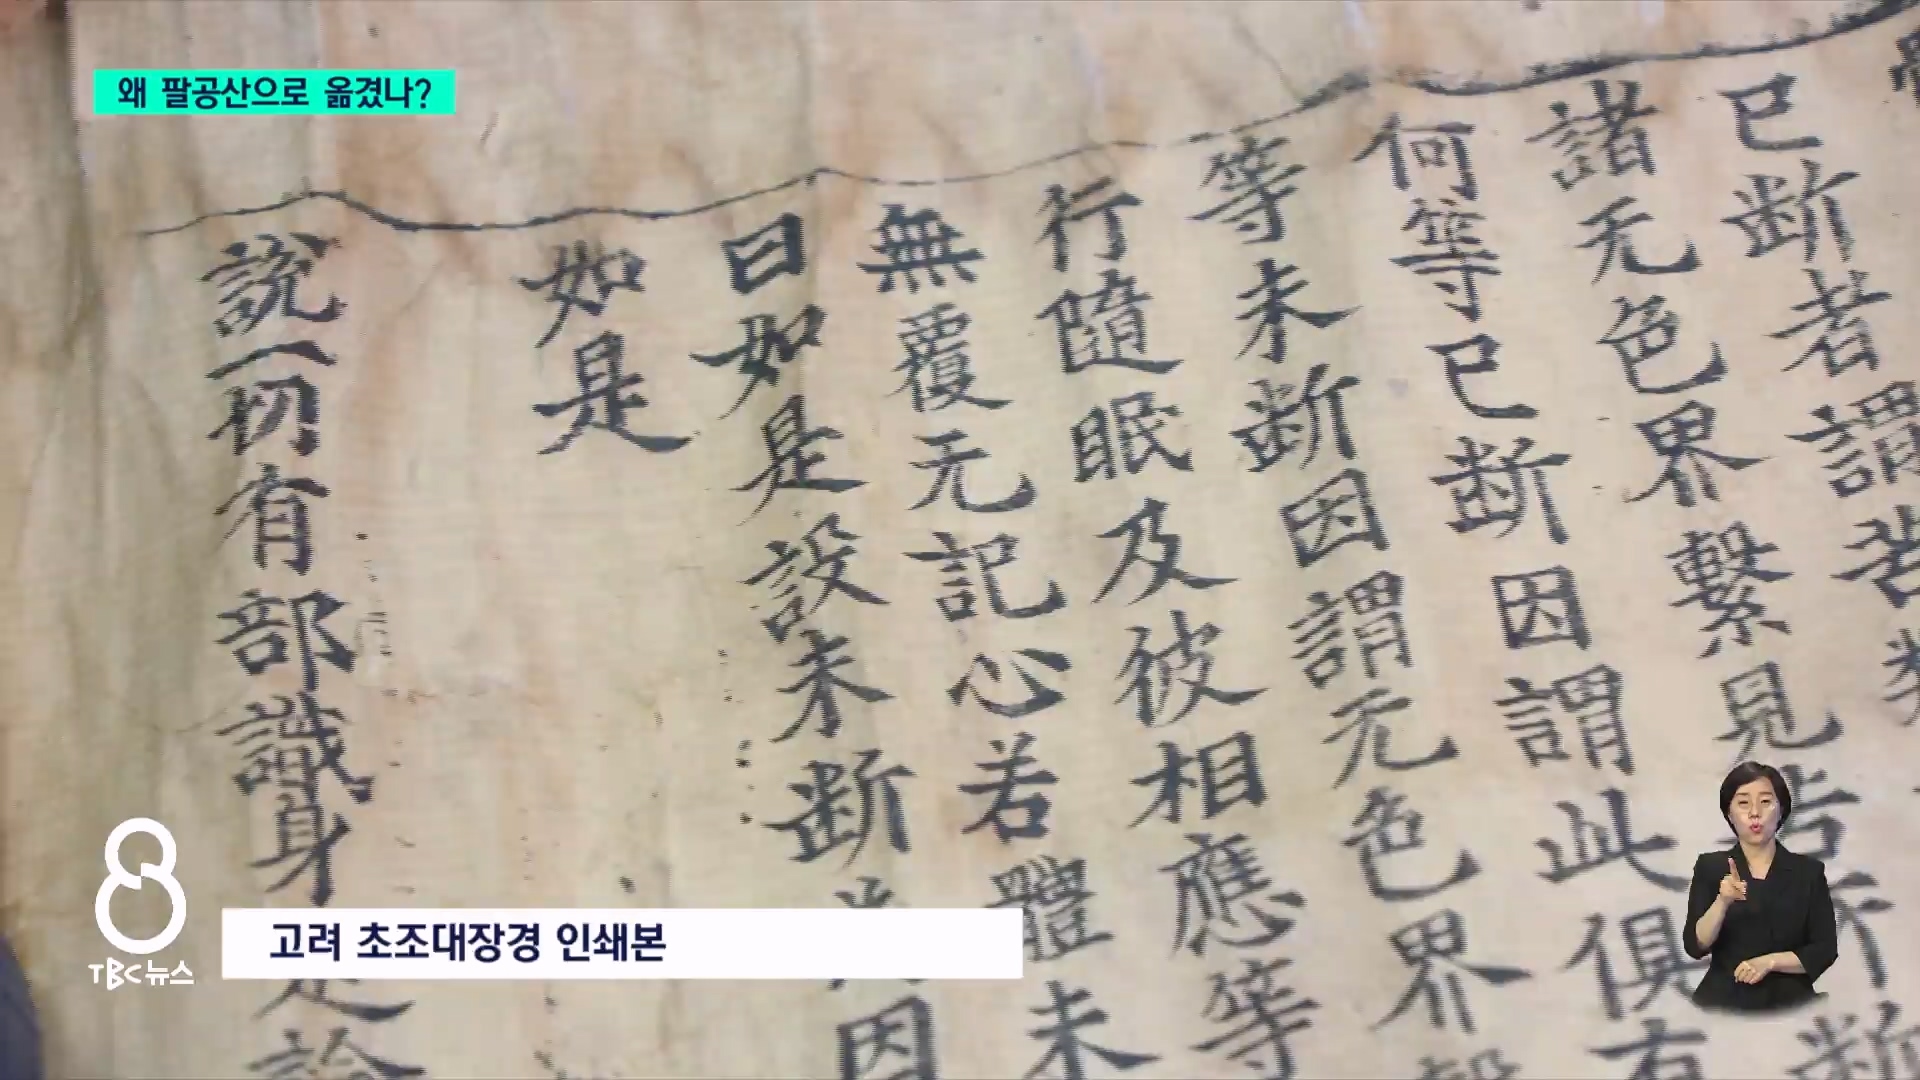 왜 팔공산으로 옮겼나?
已断者謂苦
諸无色界繫見
何等已断因謂此俱有
等未断因謂无色界
行隨眠及彼相應等
無覆无記心若體未
曰如是設未断
因
如是
說一切有部識身足論
고려 초조대장경 인쇄본
8
TBC뉴스